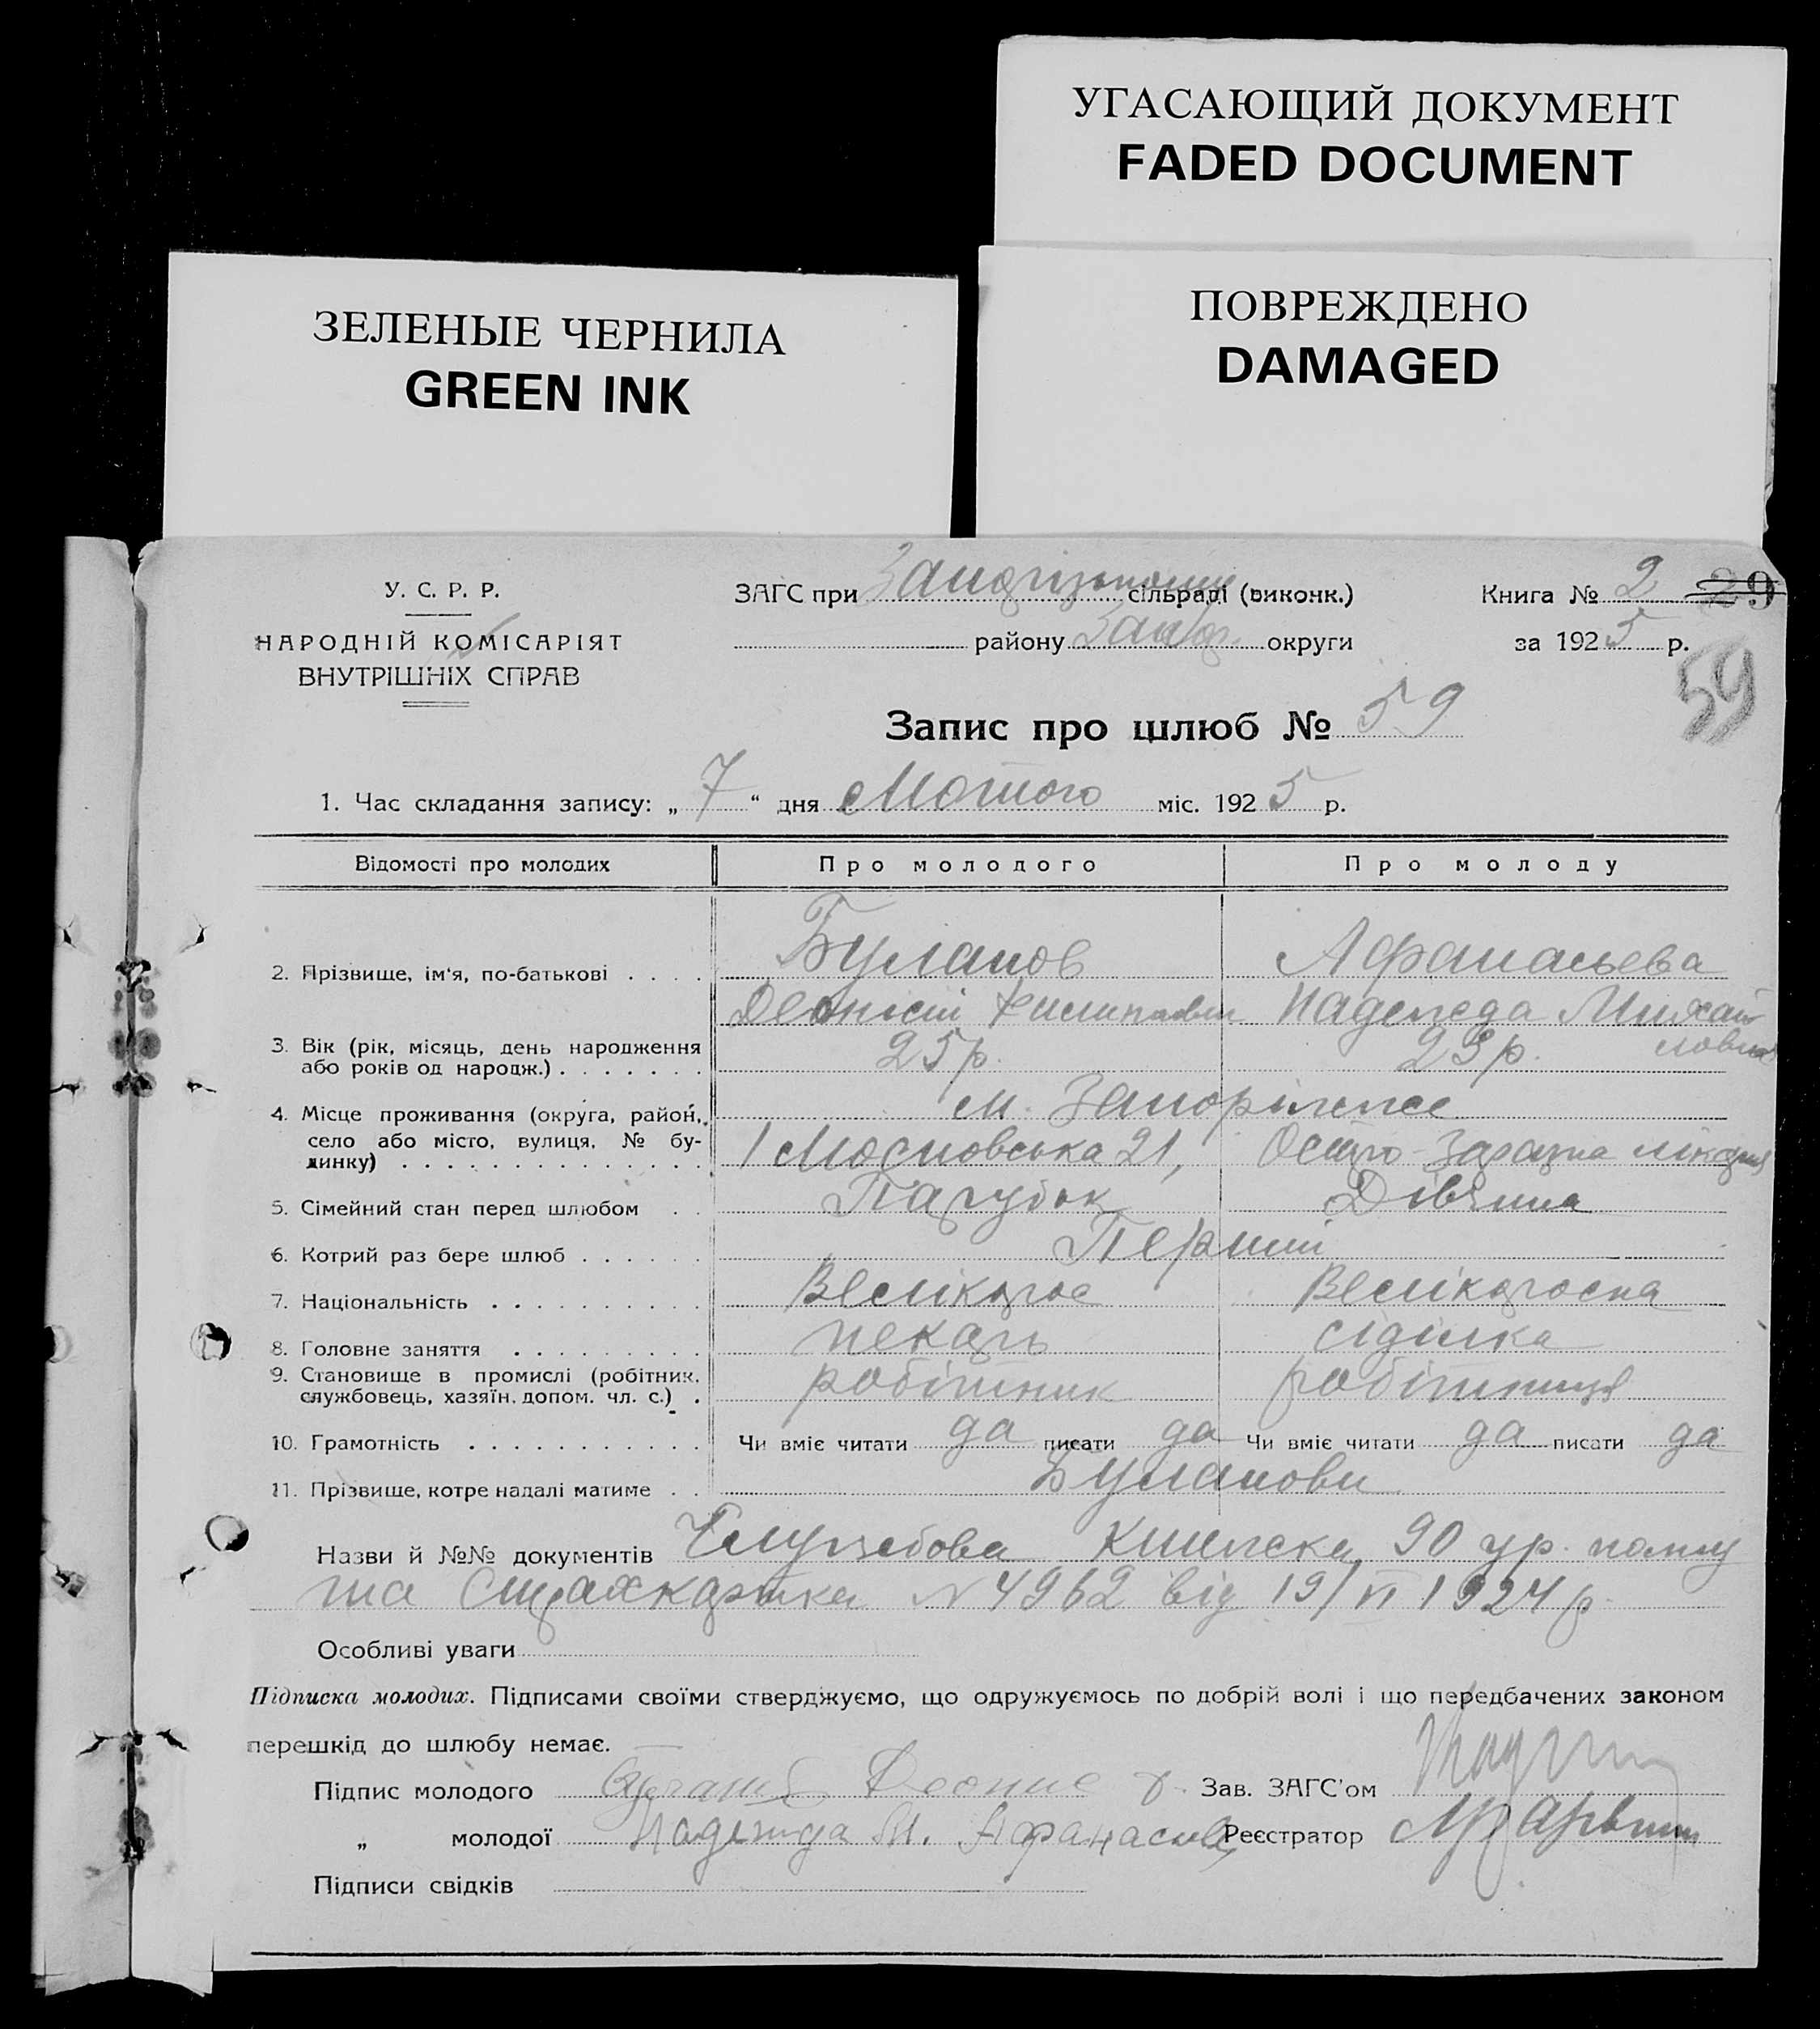 УГАСАЮЩИЙ ДОКУМЕНТ
FADED DOCUMENT
ЗЕЛЕНЫЕ ЧЕРНИЛА
GREEN INK
ПОВРЕЖДЕНО
DAMAGED
У. С. Р. Р.
НАРОДНІЙ КОМІСАРІЯТ
ВНУТРІШНІХ СПРАВ
ЗАГС при сільраді (виконк.)
району Запор. округи
Книга № 2 29
за 1925 р.
59
Запис про шлюб № 59
1. Час складання запису: „ 7 “ дня Лютого міс. 1925 р.
Відомості про молодих Про молодого Про молоду
2. Прізвище, ім'я, по-батькові . . . . Буланов Афанасьева
Надежда Михай
ловна
3. Вік (рік, місяць, день народження
або років од народж.) . . . . . . . 25 р. 23 р.
4. Місце проживання (округа, район,
село або місто, вулиця, № бу-
динку) . . . . . . . . . . . . . .
м. Запоріжжє
Московська 21, Остро-Заразна лікарня
5. Сімейний стан перед шлюбом . . Парубок Дівчина
6. Котрий раз бере шлюб . . . . . . Перший
7. Національність . . . . . . . . . . Велікорос Велікороска
8. Головне заняття . . . . . . . . . пекарь сіділка
9. Становище в промислі (робітник,
службовець, хазяїн, допом. чл. с.) . робітник робітниця
10. Грамотність . . . . . . . . . . . Чи вміє читати да писати да Чи вміє читати да писати да
11. Прізвище, котре надалі матиме . . Буланови
Назви й №№ документів Служебова Книжка 90 полку
та Страхкартка № 4962 від 19/VI 1924 р.
Особливі уваги
Підписка молодих. Підписами своїми стверджуємо, що одружуємось по добрій волі і що передбачених законом
перешкід до шлюбу немає.
Підпис молодого Зав. ЗАГС'ом
„ молодої Надежда М. Афанасьева Реєстратор
Підписи свідків